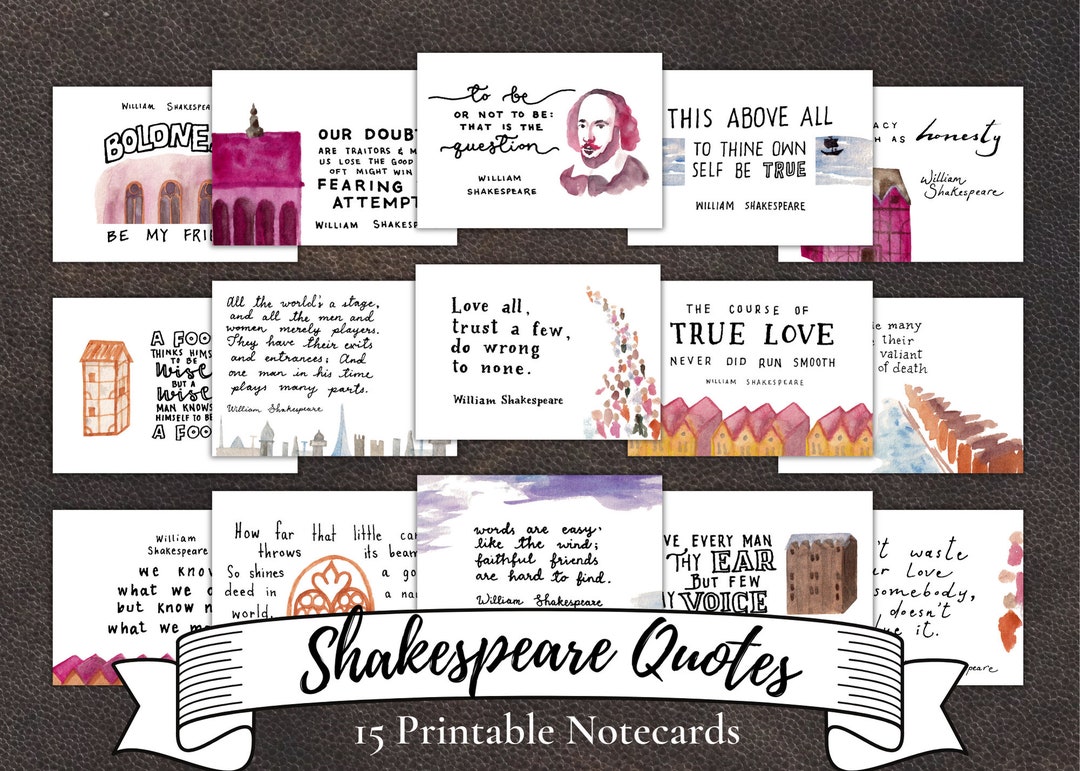 William Shakespea
BOLDNE
BE MY FRI
OUR DOUBT
ARE TRAITORS & M
US LOSE THE GOOD
OFT MIGHT WIN
FEARING
ATTEMPT
William Shakesp
to be
OR NOT TO BE:
THAT IS THE
question
WILLIAM
SHAKESPEARE
THIS ABOVE ALL
TO THINE OWN
SELF BE TRUE
WILLIAM SHAKESPEARE
ACY
AS honesty
William
Shakespeare
A FOO
THINKS HIMS
TO BE
Wise
BUT A
Wise
MAN KNOWS
HIMSELF TO BE
A FOO
All the world's a stage,
and all the men and
women merely players.
They have their exits
and entrances; And
one man in his time
plays many parts.
William Shakespeare
Love all,
trust a few,
do wrong
to none.
William Shakespeare
THE COURSE OF
TRUE LOVE
NEVER DID RUN SMOOTH
WILLIAM SHAKESPEARE
ie many
their
valiant
of death
William
Shakespeare
we know
what we
but know n
what we m
How far that little can
throws its beam
So shines a go
deed in a na
world.
words are easy,
like the wind;
faithful friends
are hard to find.
William Shakespeare
VE EVERY MAN
THY EAR
BUT FEW
Y VOICE
't waste
ur Love
somebody,
doesn't
ue it.
peare
Shakespeare Quotes
15 Printable Notecards